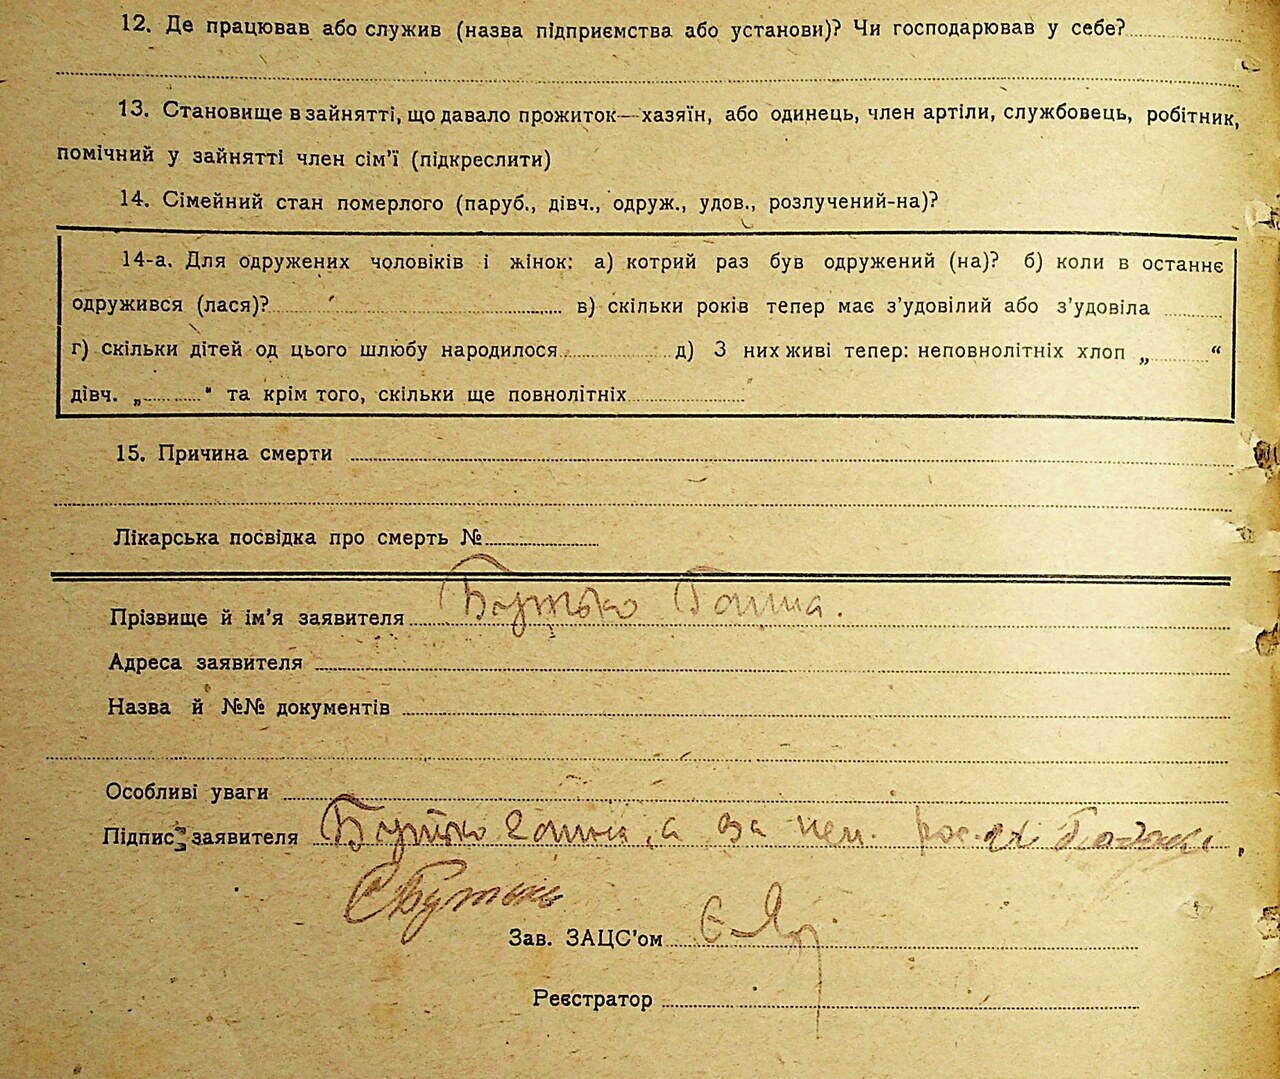 12. Де працював або служив (назва підприємства або установи)? Чи господарював у себе?
13. Становище в зайнятті, що давало прожиток—хазяїн, або одинець, член артіли, службовець, робітник,
помічний у зайнятті член сім'ї (підкреслити)
14. Сімейний стан померлого (паруб., дівч., одруж., удов., розлучений-на)?
14-а. Для одружених чоловіків і жінок: а) котрий раз був одружений (на)? б) коли в останнє
одружився (лася)? в) скільки років тепер має з'удовілий або з'удовіла
г) скільки дітей од цього шлюбу народилося д) З них живі тепер: неповнолітніх хлоп „ “
дівч. „ “ та крім того, скільки ще повнолітніх
15. Причина смерти
Лікарська посвідка про смерть №
Прізвище й ім'я заявителя Бутько Ганна.
Адреса заявителя
Назва й №№ документів
Особливі уваги
Підпис заявителя Бутько Ганна, а за неп.
СБутько
Зав. ЗАЦС'ом
Реєстратор